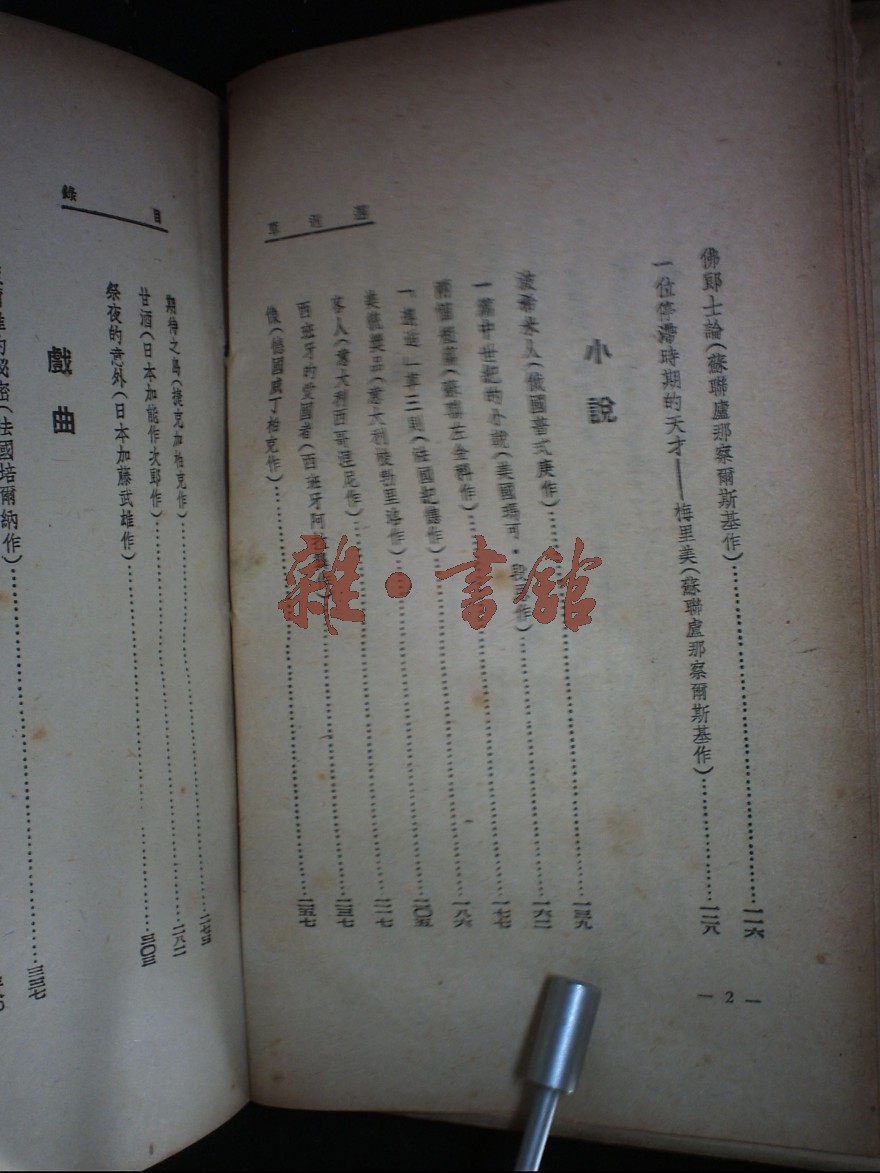 佛郎士論(蘇聯盧那察爾斯基作)……一一六
一位停滯時期的天才——梅里美(蘇聯盧那察爾斯基作)……一二八
小說
波希米人(俄國作)……一三九
一篇中世紀的小說(美國瑪可・作)……一六二
兩個(蘇聯左金科作)……一七七
一章三則(法國紀德作)……一八六
美術獎品(意大利作)……二〇五
客人(意大利西哥涅尼作)……二一七
西班牙的愛國者(西班牙阿作)……二三七
像(德國威丁柏克作)……二五七
— 2 —
目錄
期待之島(捷克加柏克作)……二七三
甘酒(日本加能作次郎作)……二八二
祭夜的意外(日本加藤武雄作)……三〇三
戲曲
的秘密(法國培爾納作)……三三七
雜・書館